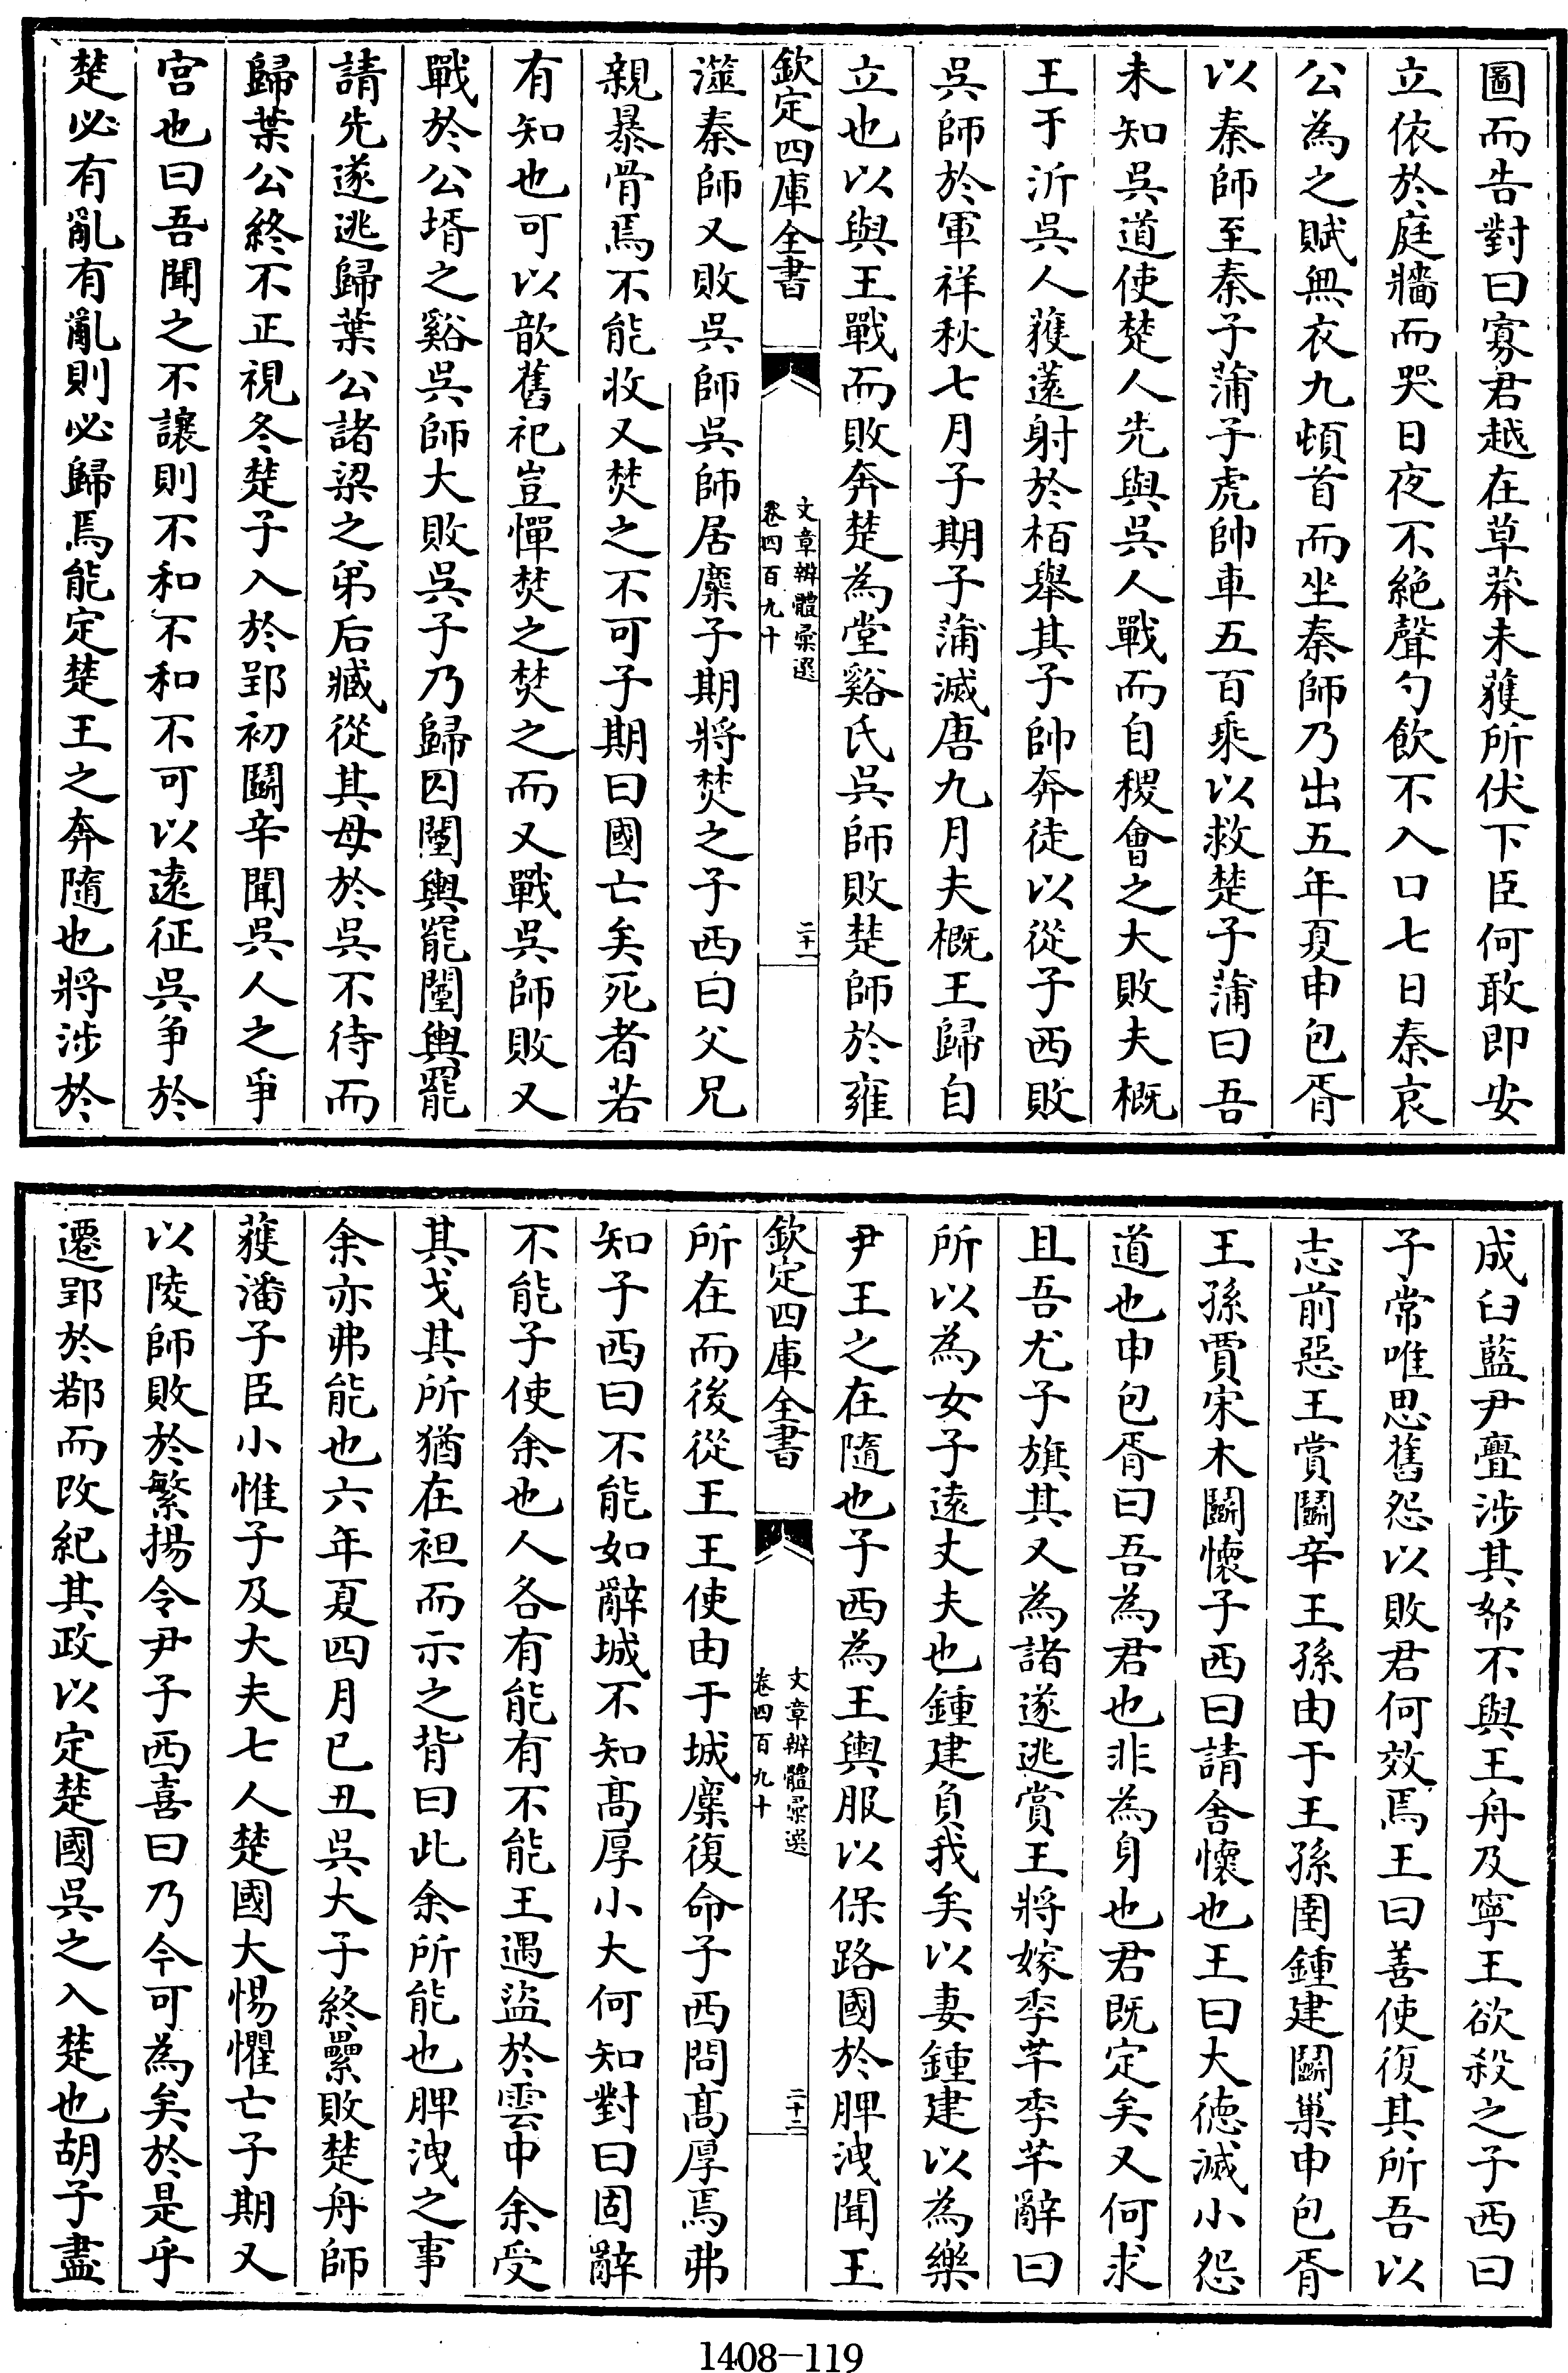 圖而告對曰寡君越在草莽未獲所伏下臣何敢即安
立依於庭牆而哭日夜不絶聲勺飲不入口七日秦哀
公為之賦無衣九頓首而坐秦師乃出五年夏申包胥
以秦師至秦子蒲子虎帥車五百乘以救楚子蒲曰吾
未知吳道使楚人先與吳人戰而自稷會之大敗夫概
王于沂吳人獲薳射於栢舉其子帥奔徒以從子西敗
吳師於軍祥秋七月子期子蒲滅唐九月夫概王歸自
立也以與王戰而敗奔楚為堂谿氏吳師敗楚師於雍
欽定四庫全書
文章辨體彚選
卷四百九十
二十一
澨秦師又敗吳師吳師居麇子期將焚之子西曰父兄
親暴骨焉不能收又焚之不可子期曰國亡矣死者若
有知也可以歆舊祀豈憚焚之焚之而又戰吳師敗又
戰於公壻之谿吳師大敗吳子乃歸囚闉輿罷闉輿罷
請先遂逃歸葉公諸梁之弟后臧從其母於吳不待而
歸葉公終不正視冬楚子入於郢初鬬辛聞吳人之爭
宮也曰吾聞之不讓則不和不和不可以遠征吳爭於
楚必有亂有亂則必歸焉能定楚王之奔隨也將涉於
成臼藍尹亹涉其帑不與王舟及寧王欲殺之子西曰
子常唯思舊怨以敗君何效焉王曰善使復其所吾以
志前惡王賞鬬辛王孫由于王孫圉鍾建鬬巢申包胥
王孫賈宋木鬬懷子西曰請舍懷也王曰大德滅小怨
道也申包胥曰吾為君也非為身也君既定矣又何求
且吾尤子旗其又為諸遂逃賞王將嫁季芊季芊辭曰
所以為女子遠丈夫也鍾建負我矣以妻鍾建以為樂
尹王之在隨也子西為王輿服以保路國於脾洩聞王
欽定四庫全書
文章辨體彚選
卷四百九十
二十二
所在而後從王王使由于城麇復命子西問髙厚焉弗
知子西曰不能如辭城不知髙厚小大何知對曰固辭
不能子使余也人各有能有不能王遇盜於雲中余受
其戈其所猶在袒而示之背曰此余所能也脾洩之事
余亦弗能也六年夏四月已丑吳大子終纍敗楚舟師
獲潘子臣小惟子及大夫七人楚國大惕懼亡子期又
以陵師敗於繁揚令尹子西喜曰乃今可為矣於是乎
遷郢於鄀而改紀其政以定楚國吳之入楚也胡子盡
1408-119